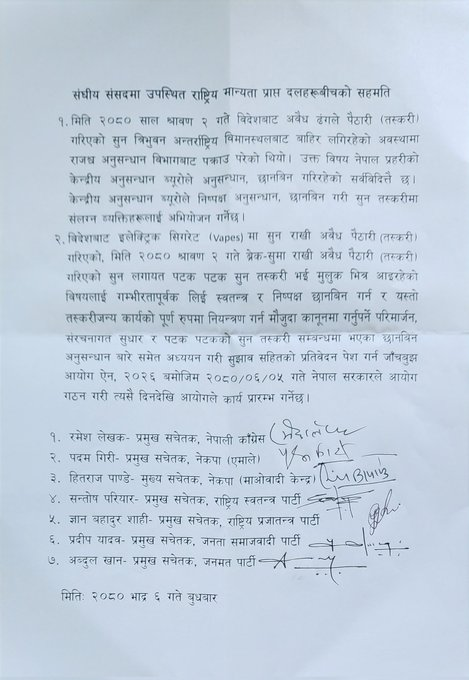 संघीय संसदमा उपस्थित राष्ट्रिय मान्यता प्राप्त दलहरूबीचको सहमति
१. मिति २०८० साल श्रावण २ गते विदेशबाट अवैध ढंगले पैठारी (तस्करी)
गरिएको सुन त्रिभुवन अन्तर्राष्ट्रिय विमानस्थलबाट बाहिर लगिरहेको अवस्थामा
राजश्व अनुसन्धान विभागबाट पक्राउ परेको थियो। उक्त विषय नेपाल प्रहरीको
केन्द्रीय अनुसन्धान ब्यूरोले अनुसन्धान, छानबिन गरिरहेको सर्वविदितै छ।
केन्द्रीय अनुसन्धान ब्यूरोले निष्पक्ष अनुसन्धान, छानविन गरी सुन तस्करीमा
संलग्न व्यक्तिहरूलाई अभियोजन गर्नेछ।
२. विदेशबाट इलेक्ट्रिक सिगरेट (Vapes) मा सुन राखी अवैध पैठारी (तस्करी)
गरिएको, मिति २०८० श्रावण २ गते ब्रेक-सुमा राखी अवैध पैठारी (तस्करी)
गरिएको सुन लगायत पटक पटक सुन तस्करी भई मुलुक भित्र आइरहेको
विषयलाई गम्भीरतापूर्वक लिई स्वतन्त्र र निष्पक्ष छानबिन गर्न र यस्तो
तस्करीजन्य कार्यको पूर्ण रुपमा नियन्त्रण गर्न मौजुदा कानूनमा गर्नुपर्ने परिमार्जन,
संरचनागत सुधार र पटक पटकको सुन तस्करी सम्बन्धमा भएका छानबिन
अनुसन्धान बारे समेत अध्ययन गरी सुझाव सहितको प्रतिवेदन पेश गर्न जाँचबुझ
आयोग ऐन, २०२६ बमोजिम २०८०/०६/०५ गते नेपाल सरकारले आयोग
गठन गरी त्यसै दिनदेखि आयोगले कार्य प्रारम्भ गर्नेछ।
१. रमेश लेखक- प्रमुख सचेतक, नेपाली काँग्रेस
२. पदम गिरी- प्रमुख सचेतक, नेकपा (एमाले)
३. हितराज पाण्डे- मुख्य सचेतक, नेकपा (माओवादी केन्द्र)
४. सन्तोष परियार- प्रमुख सचेतक, राष्ट्रिय स्वतन्त्र पार्टी
५. ज्ञान बहादुर शाही- प्रमुख सचेतक, राष्ट्रिय प्रजातन्त्र पार्टी
६. प्रदीप यादव- प्रमुख सचेतक, जनता समाजवादी पार्टी
७. अब्दुल खान- प्रमुख सचेतक, जनमत पार्टी
मितिः २०८० भाद्र ६ गते बुधबार